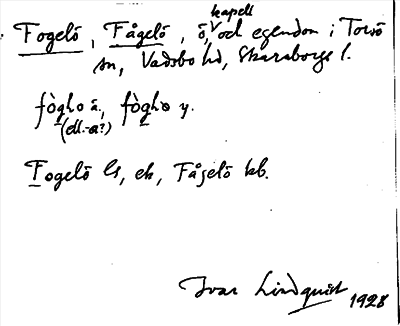 Fogelö, Fågelö, ö, kapell och egendom i Torsö
sn, Vadsbo hd, Skaraborgs l.
(el. -a?)
Fogelö Gs, ek, Fågelö kb.
Ivar Lindquist 1928